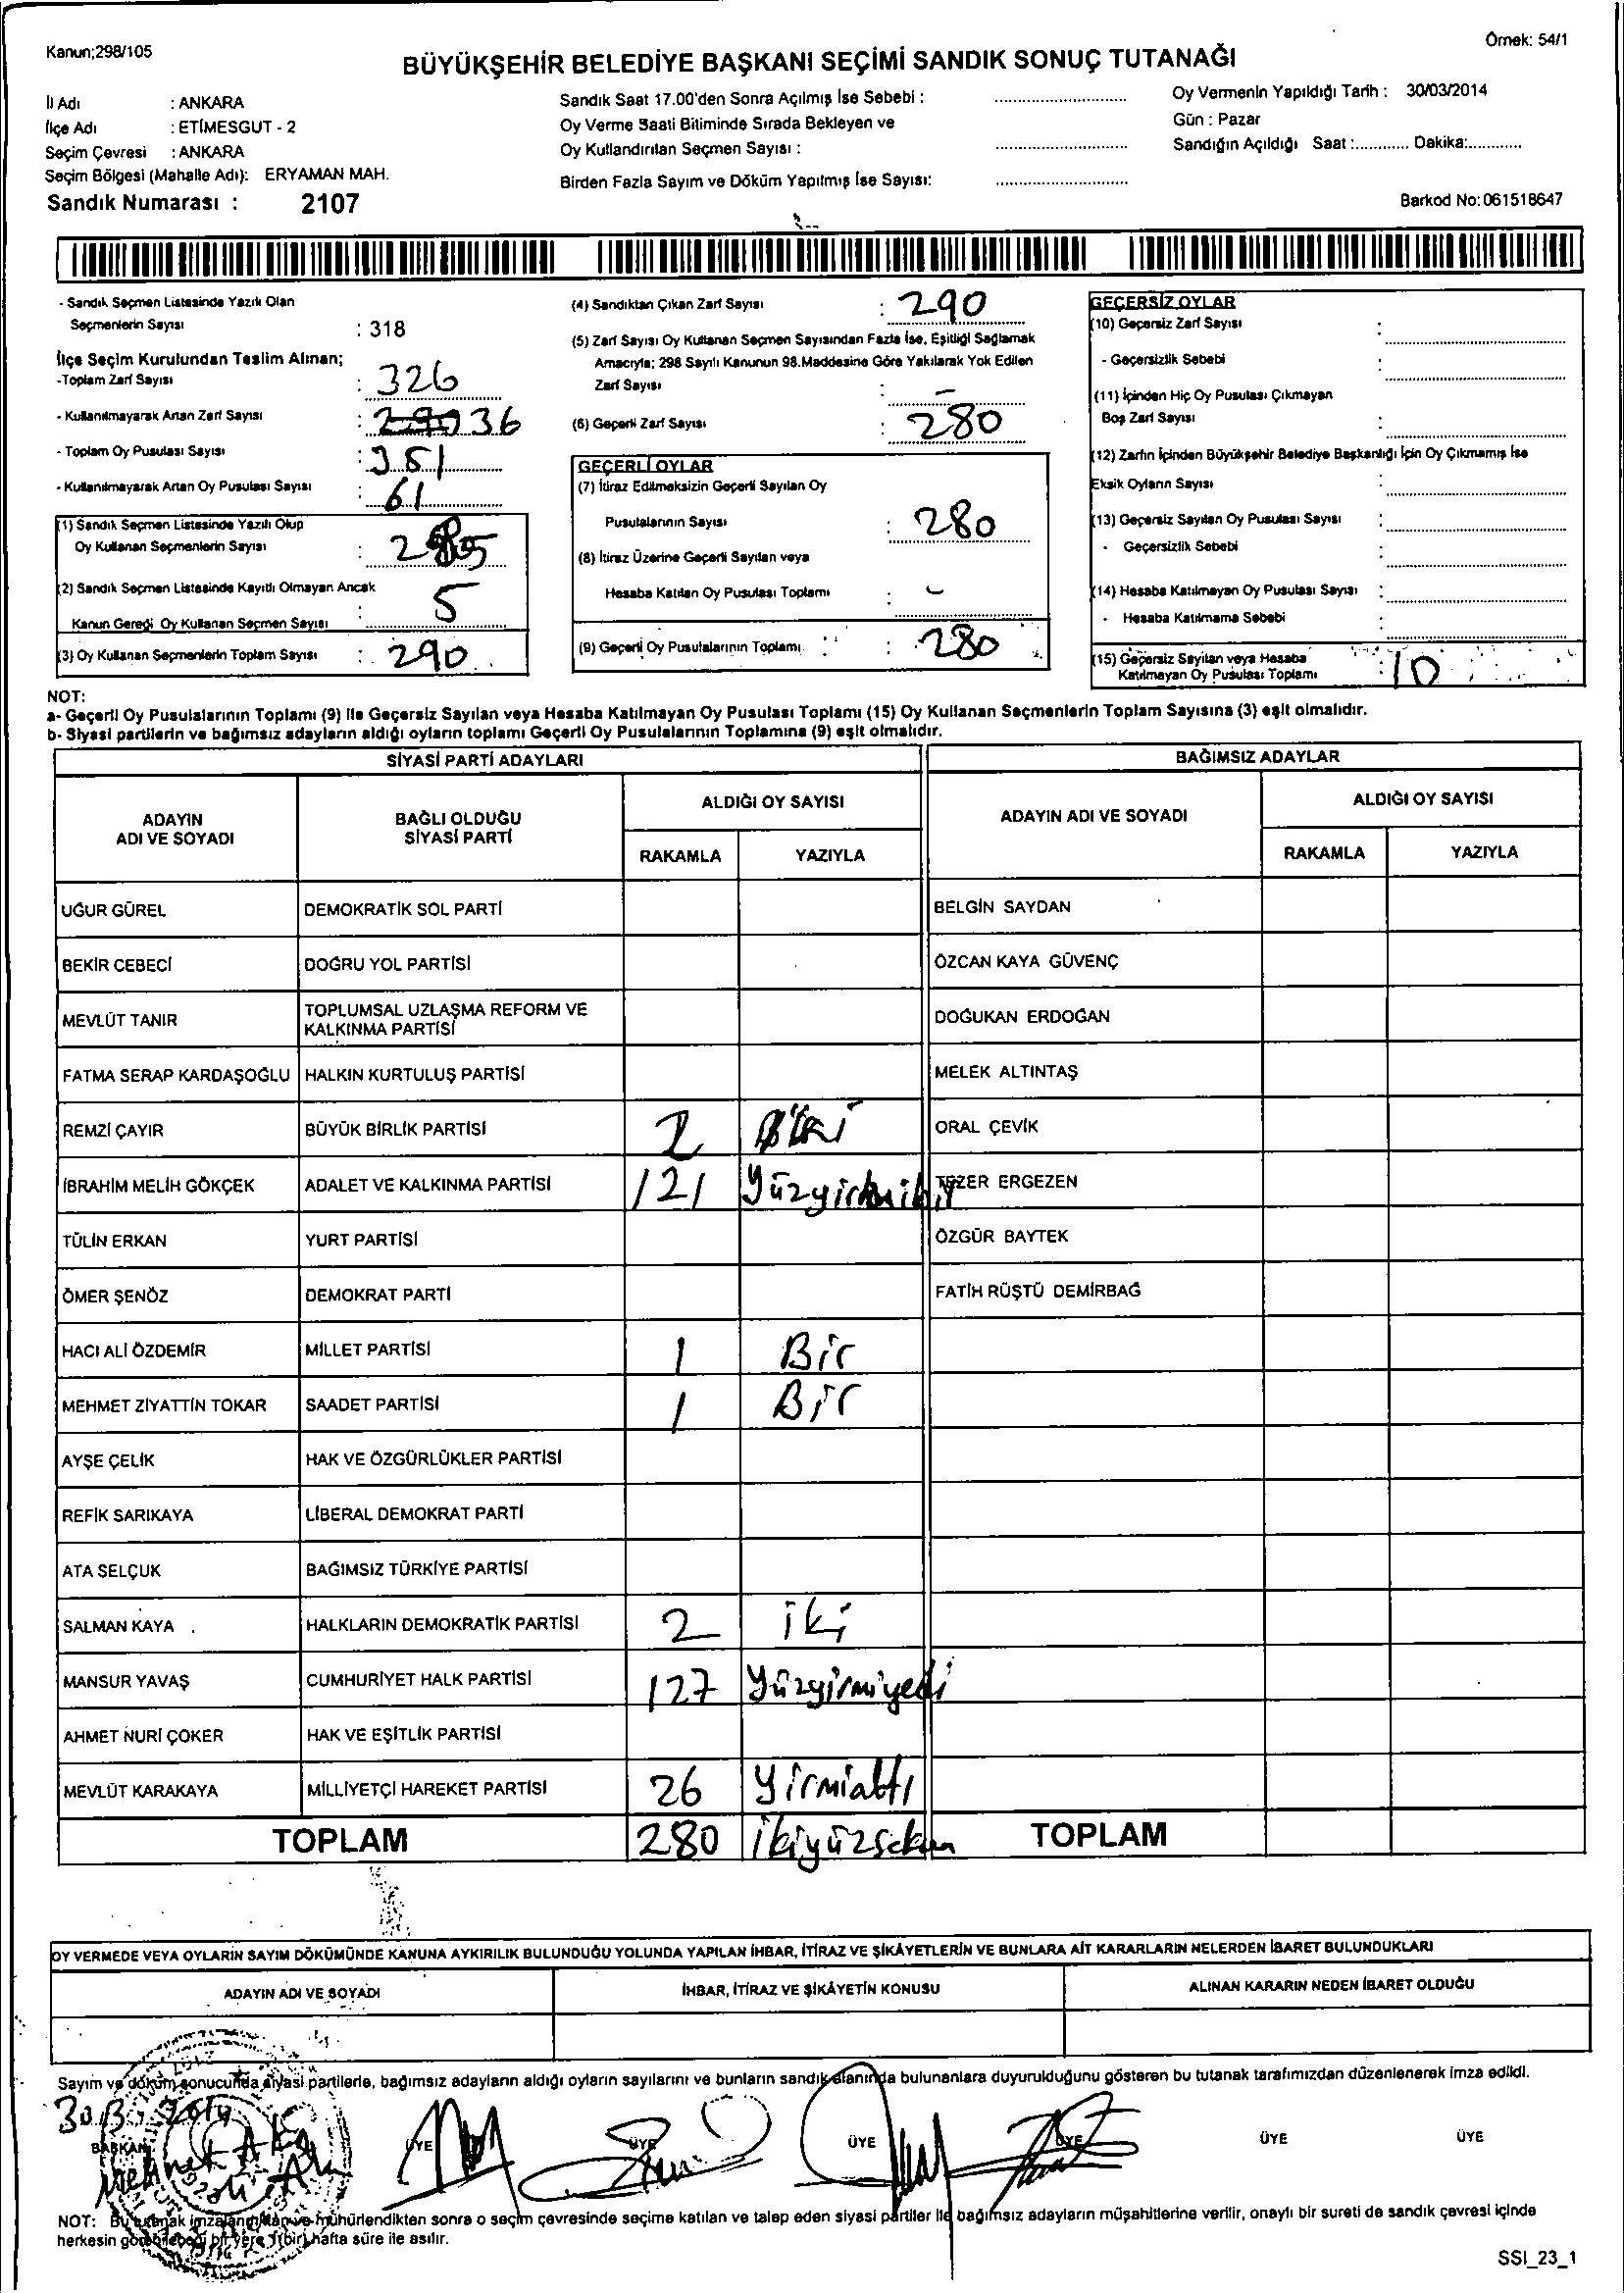 Kanun;298/105
Örnek: 54/1
BÜYÜKŞEHİR BELEDİYE BAŞKANI SEÇİMİ SANDIK SONUÇ TUTANAĞI
İl Adı : ANKARA
İlçe Adı : ETİMESGUT - 2
Seçim Çevresi : ANKARA
Seçim Bölgesi (Mahalle Adı): ERYAMAN MAH.
Sandık Numarası : 2107
Sandık Saat 17.00'den Sonra Açılmış İse Sebebi :
Oy Verme Saati Bitiminde Sırada Bekleyen ve
Oy Kullandırılan Seçmen Sayısı :
Birden Fazla Sayım ve Döküm Yapılmış İse Sayısı:
Oy Vermenin Yapıldığı Tarih : 30/03/2014
Gün : Pazar
Sandığın Açıldığı Saat :............ Dakika:............
Barkod No:061518647
- Sandık Seçmen Listesinde Yazılı Olan
Seçmenlerin Sayısı : 318
İlçe Seçim Kurulundan Teslim Alınan;
-Toplam Zarf Sayısı : 326
- Kullanılmayarak Artan Zarf Sayısı : 36
- Toplam Oy Pusulası Sayısı : 351
- Kullanılmayarak Artan Oy Pusulası Sayısı : 61
(1) Sandık Seçmen Listesinde Yazılı Olup
Oy Kullanan Seçmenlerin Sayısı : 285
(2) Sandık Seçmen Listesinde Kayıtlı Olmayan Ancak
Kanun Gereği Oy Kullanan Seçmen Sayısı : 5
(3) Oy Kullanan Seçmenlerin Toplam Sayısı : 290
(4) Sandıktan Çıkan Zarf Sayısı : 290
(5) Zarf Sayısı Oy Kullanan Seçmen Sayısından Fazla İse, Eşitliği Sağlamak
Amacıyla; 298 Sayılı Kanunun 98.Maddesine Göre Yakılarak Yok Edilen
Zarf Sayısı : -
(6) Geçerli Zarf Sayısı : 280
GEÇERLİ OYLAR
(7) İtiraz Edilmeksizin Geçerli Sayılan Oy
Pusulalarının Sayısı : 280
(8) İtiraz Üzerine Geçerli Sayılan veya
Hesaba Katılan Oy Pusulası Toplamı : -
(9) Geçerli Oy Pusulalarının Toplamı : 280
GEÇERSİZ OYLAR
(10) Geçersiz Zarf Sayısı :
- Geçersizlik Sebebi :
(11) İçinden Hiç Oy Pusulası Çıkmayan
Boş Zarf Sayısı :
(12) Zarfın İçinden Büyükşehir Belediye Başkanlığı İçin Oy Çıkmamış İse
Eksik Oyların Sayısı :
(13) Geçersiz Sayılan Oy Pusulası Sayısı :
- Geçersizlik Sebebi :
(14) Hesaba Katılmayan Oy Pusulası Sayısı :
- Hesaba Katılmama Sebebi :
(15) Geçersiz Sayılan veya Hesaba
Katılmayan Oy Pusulası Toplamı : 10
NOT:
a- Geçerli Oy Pusulalarının Toplamı (9) ile Geçersiz Sayılan veya Hesaba Katılmayan Oy Pusulası Toplamı (15) Oy Kullanan Seçmenlerin Toplam Sayısına (3) eşit olmalıdır.
b- Siyasi partilerin ve bağımsız adayların aldığı oyların toplamı Geçerli Oy Pusulalarının Toplamına (9) eşit olmalıdır.
SİYASİ PARTİ ADAYLARI
BAĞIMSIZ ADAYLAR
ADAYIN ADI VE SOYADI
BAĞLI OLDUĞU SİYASİ PARTİ
ALDIĞI OY SAYISI
RAKAMLA YAZIYLA
ADAYIN ADI VE SOYADI
ALDIĞI OY SAYISI
RAKAMLA YAZIYLA
UĞUR GÜREL DEMOKRATİK SOL PARTİ BELGİN SAYDAN
BEKİR CEBECİ DOĞRU YOL PARTİSİ ÖZCAN KAYA GÜVENÇ
MEVLÜT TANIR TOPLUMSAL UZLAŞMA REFORM VE KALKINMA PARTİSİ DOĞUKAN ERDOĞAN
FATMA SERAP KARDAŞOĞLU HALKIN KURTULUŞ PARTİSİ MELEK ALTINTAŞ
REMZİ ÇAYIR BÜYÜK BİRLİK PARTİSİ 2 iki ORAL ÇEVİK
İBRAHİM MELİH GÖKÇEK ADALET VE KALKINMA PARTİSİ 121 Yüzyirmibir TEZER ERGEZEN
TÜLİN ERKAN YURT PARTİSİ ÖZGÜR BAYTEK
ÖMER ŞENÖZ DEMOKRAT PARTİ FATİH RÜŞTÜ DEMİRBAĞ
HACI ALİ ÖZDEMİR MİLLET PARTİSİ 1 Bir
MEHMET ZİYATTİN TOKAR SAADET PARTİSİ 1 Bir
AYŞE ÇELİK HAK VE ÖZGÜRLÜKLER PARTİSİ
REFİK SARIKAYA LİBERAL DEMOKRAT PARTİ
ATA SELÇUK BAĞIMSIZ TÜRKİYE PARTİSİ
SALMAN KAYA HALKLARIN DEMOKRATİK PARTİSİ 2 iki
MANSUR YAVAŞ CUMHURİYET HALK PARTİSİ 127 Yüzyirmiyedi
AHMET NURİ ÇOKER HAK VE EŞİTLİK PARTİSİ
MEVLÜT KARAKAYA MİLLİYETÇİ HAREKET PARTİSİ 26 Yirmialtı
TOPLAM 280 ikiyüzseksen TOPLAM
OY VERMEDE VEYA OYLARIN SAYIM DÖKÜMÜNDE KANUNA AYKIRILIK BULUNDUĞU YOLUNDA YAPILAN İHBAR, İTİRAZ VE ŞİKÂYETLERİN VE BUNLARA AİT KARARLARIN NELERDEN İBARET BULUNDUKLARI
ADAYIN ADI VE SOYADI İHBAR, İTİRAZ VE ŞİKÂYETİN KONUSU ALINAN KARARIN NEDEN İBARET OLDUĞU
Sayım ve döküm sonucunda siyasi partilerle, bağımsız adayların aldığı oyların sayılarını ve bunların sandık alanında bulunanlara duyurulduğunu gösteren bu tutanak tarafımızdan düzenlenerek imza edildi.
30.3.2014
BAŞKAN ÜYE ÜYE ÜYE ÜYE ÜYE ÜYE
NOT: Bu tutanak imzalanıp mühürlendikten sonra o seçim çevresinde seçime katılan ve talep eden siyasi partiler ile bağımsız adayların müşahitlerine verilir, onaylı bir sureti de sandık çevresi içinde
herkesin görebileceği bir yere 1(bir) hafta süre ile asılır.
SSI_23_1